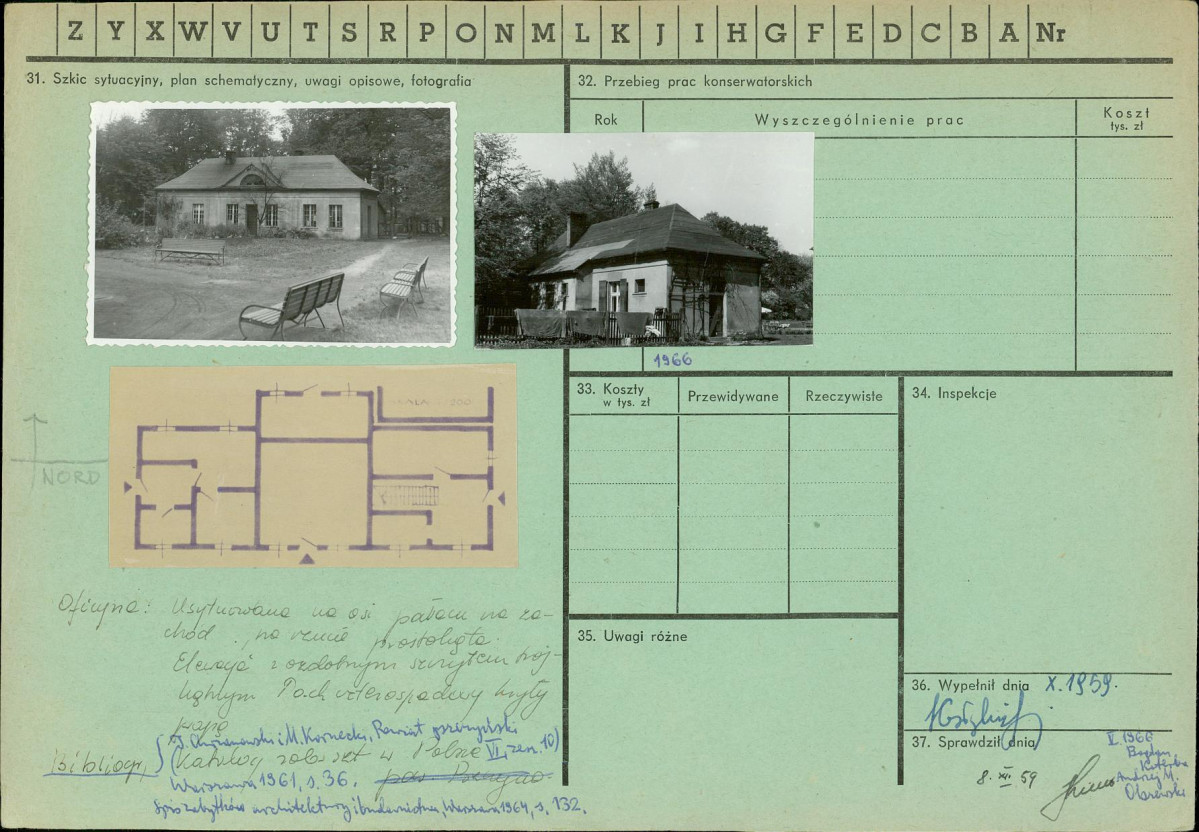 Z Y X W V U T S R P O N M L K J I H G F E D C B A Nr
31. Szkic sytuacyjny, plan schematyczny, uwagi opisowe, fotografia
32. Przebieg prac konserwatorskich
Rok
Wyszczególnienie prac
Koszt
tys. zł
1966
33. Koszty
w tys. zł
Przewidywane
Rzeczywiste
34. Inspekcje
NORD
Oficyna: Usytuowana na osi pałacu na za-
chód, na rzucie prostokąta.
Elewacja z ozdobnym szczytem trój-
kątnym Dach czterospadowy kryty
papą
Bibliogr.
i M. Kornecki, Powiat
(Katalog zab. szt. w Polsce VI, zesz. 10)
Warszawa 1961, s. 36.
Spis zabytków architektury i budownictwa, Warszawa 1964, s. 132.
35. Uwagi różne
36. Wypełnił dnia X.1959.
37. Sprawdził dnia
8. XII 59
V. 1966
Bogdan
Andrzej M.
Olszewski